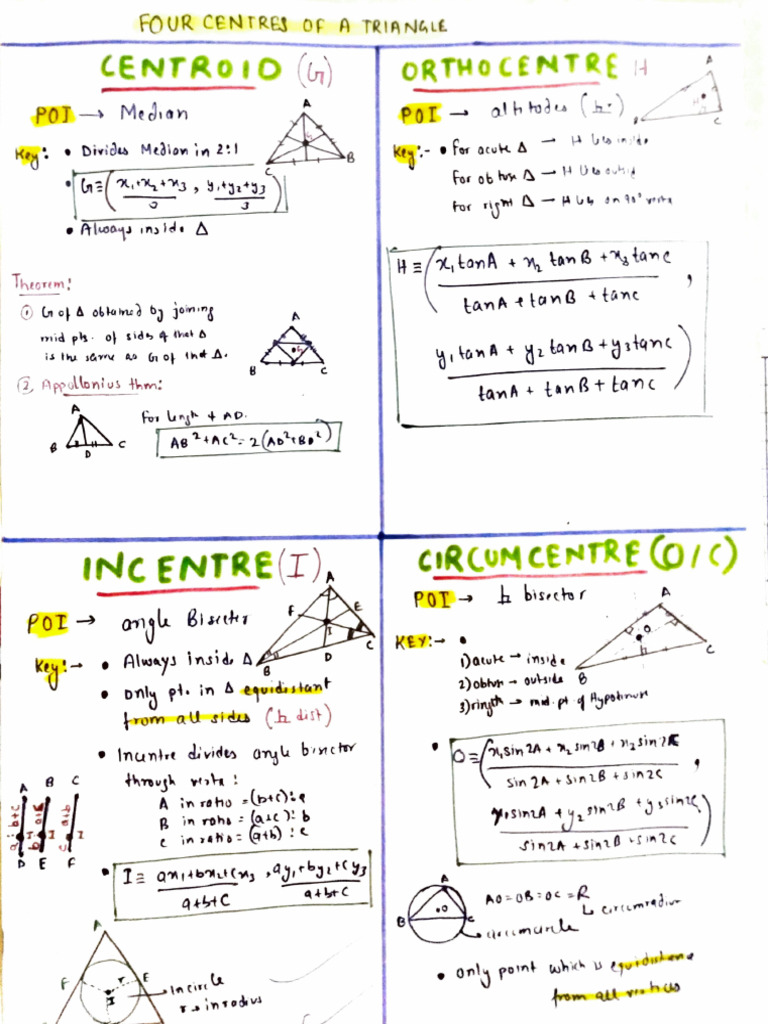 FOUR CENTRES OF A TRIANGLE
CENTROID (G)
POI → Median
Key: • Divides Median in 2:1
• G ≡ (x₁+x₂+x₃ / 3 , y₁+y₂+y₃ / 3)
• Always inside Δ
A
G
C
B
Theorem:
① G of Δ obtained by joining
mid pts. of sides of that Δ
is the same as G of that Δ.
A
G
B
C
② Appollonius thm:
A
B
D
C
For length of AD.
AB² + AC² = 2(AD² + BD²)
ORTHOCENTRE H
POI → altitudes (h.)
Key:- • for acute Δ → H lies inside
for obtus Δ → H lies outsid
for right Δ → H lies on 90° vertx
A
H
B
C
H ≡ (x₁tanA + x₂ tanB + x₃ tanC / tanA + tanB + tanC ,
y₁tanA + y₂ tanB + y₃tanC / tanA + tanB + tanC)
INCENTRE (I)
POI → angle Bisector
Key:→ • Always inside Δ
• only pt. in Δ equidistant
from all sides (h dist)
A
F
E
I
B
D
C
• Incentre divides angle bisector
through vertx:
A in ratio = (b+c):a
B in ratio = (a+c):b
C in ratio = (a+b):c
A B C
a : b+c
b : a+c
c : a+b
I I I
D E F
• I ≡ ax₁+bx₂+cx₃ / a+b+c , ay₁+by₂+cy₃ / a+b+c
A
F
E
r
I
→ Incircle
r → inradius
CIRCUMCENTRE (O/C)
POI → h bisector
KEY:→ •
1) acute → inside
2) obtus → outside
3) ringth → mid. pt of Hypotinuse
A
O
B
C
• O ≡ (x₁sin2A + x₂ sin2B + x₂ sin2C / sin2A + sin2B + sin2C ,
y₁sin2A + y₂ sin2B + y₃ sin2C / sin2A + sin2B + sin2C)
A
O
B
C
AO = OB = OC = R
↳ circumradius
→ circumcircle
• only point which is equidistance
from all vertices